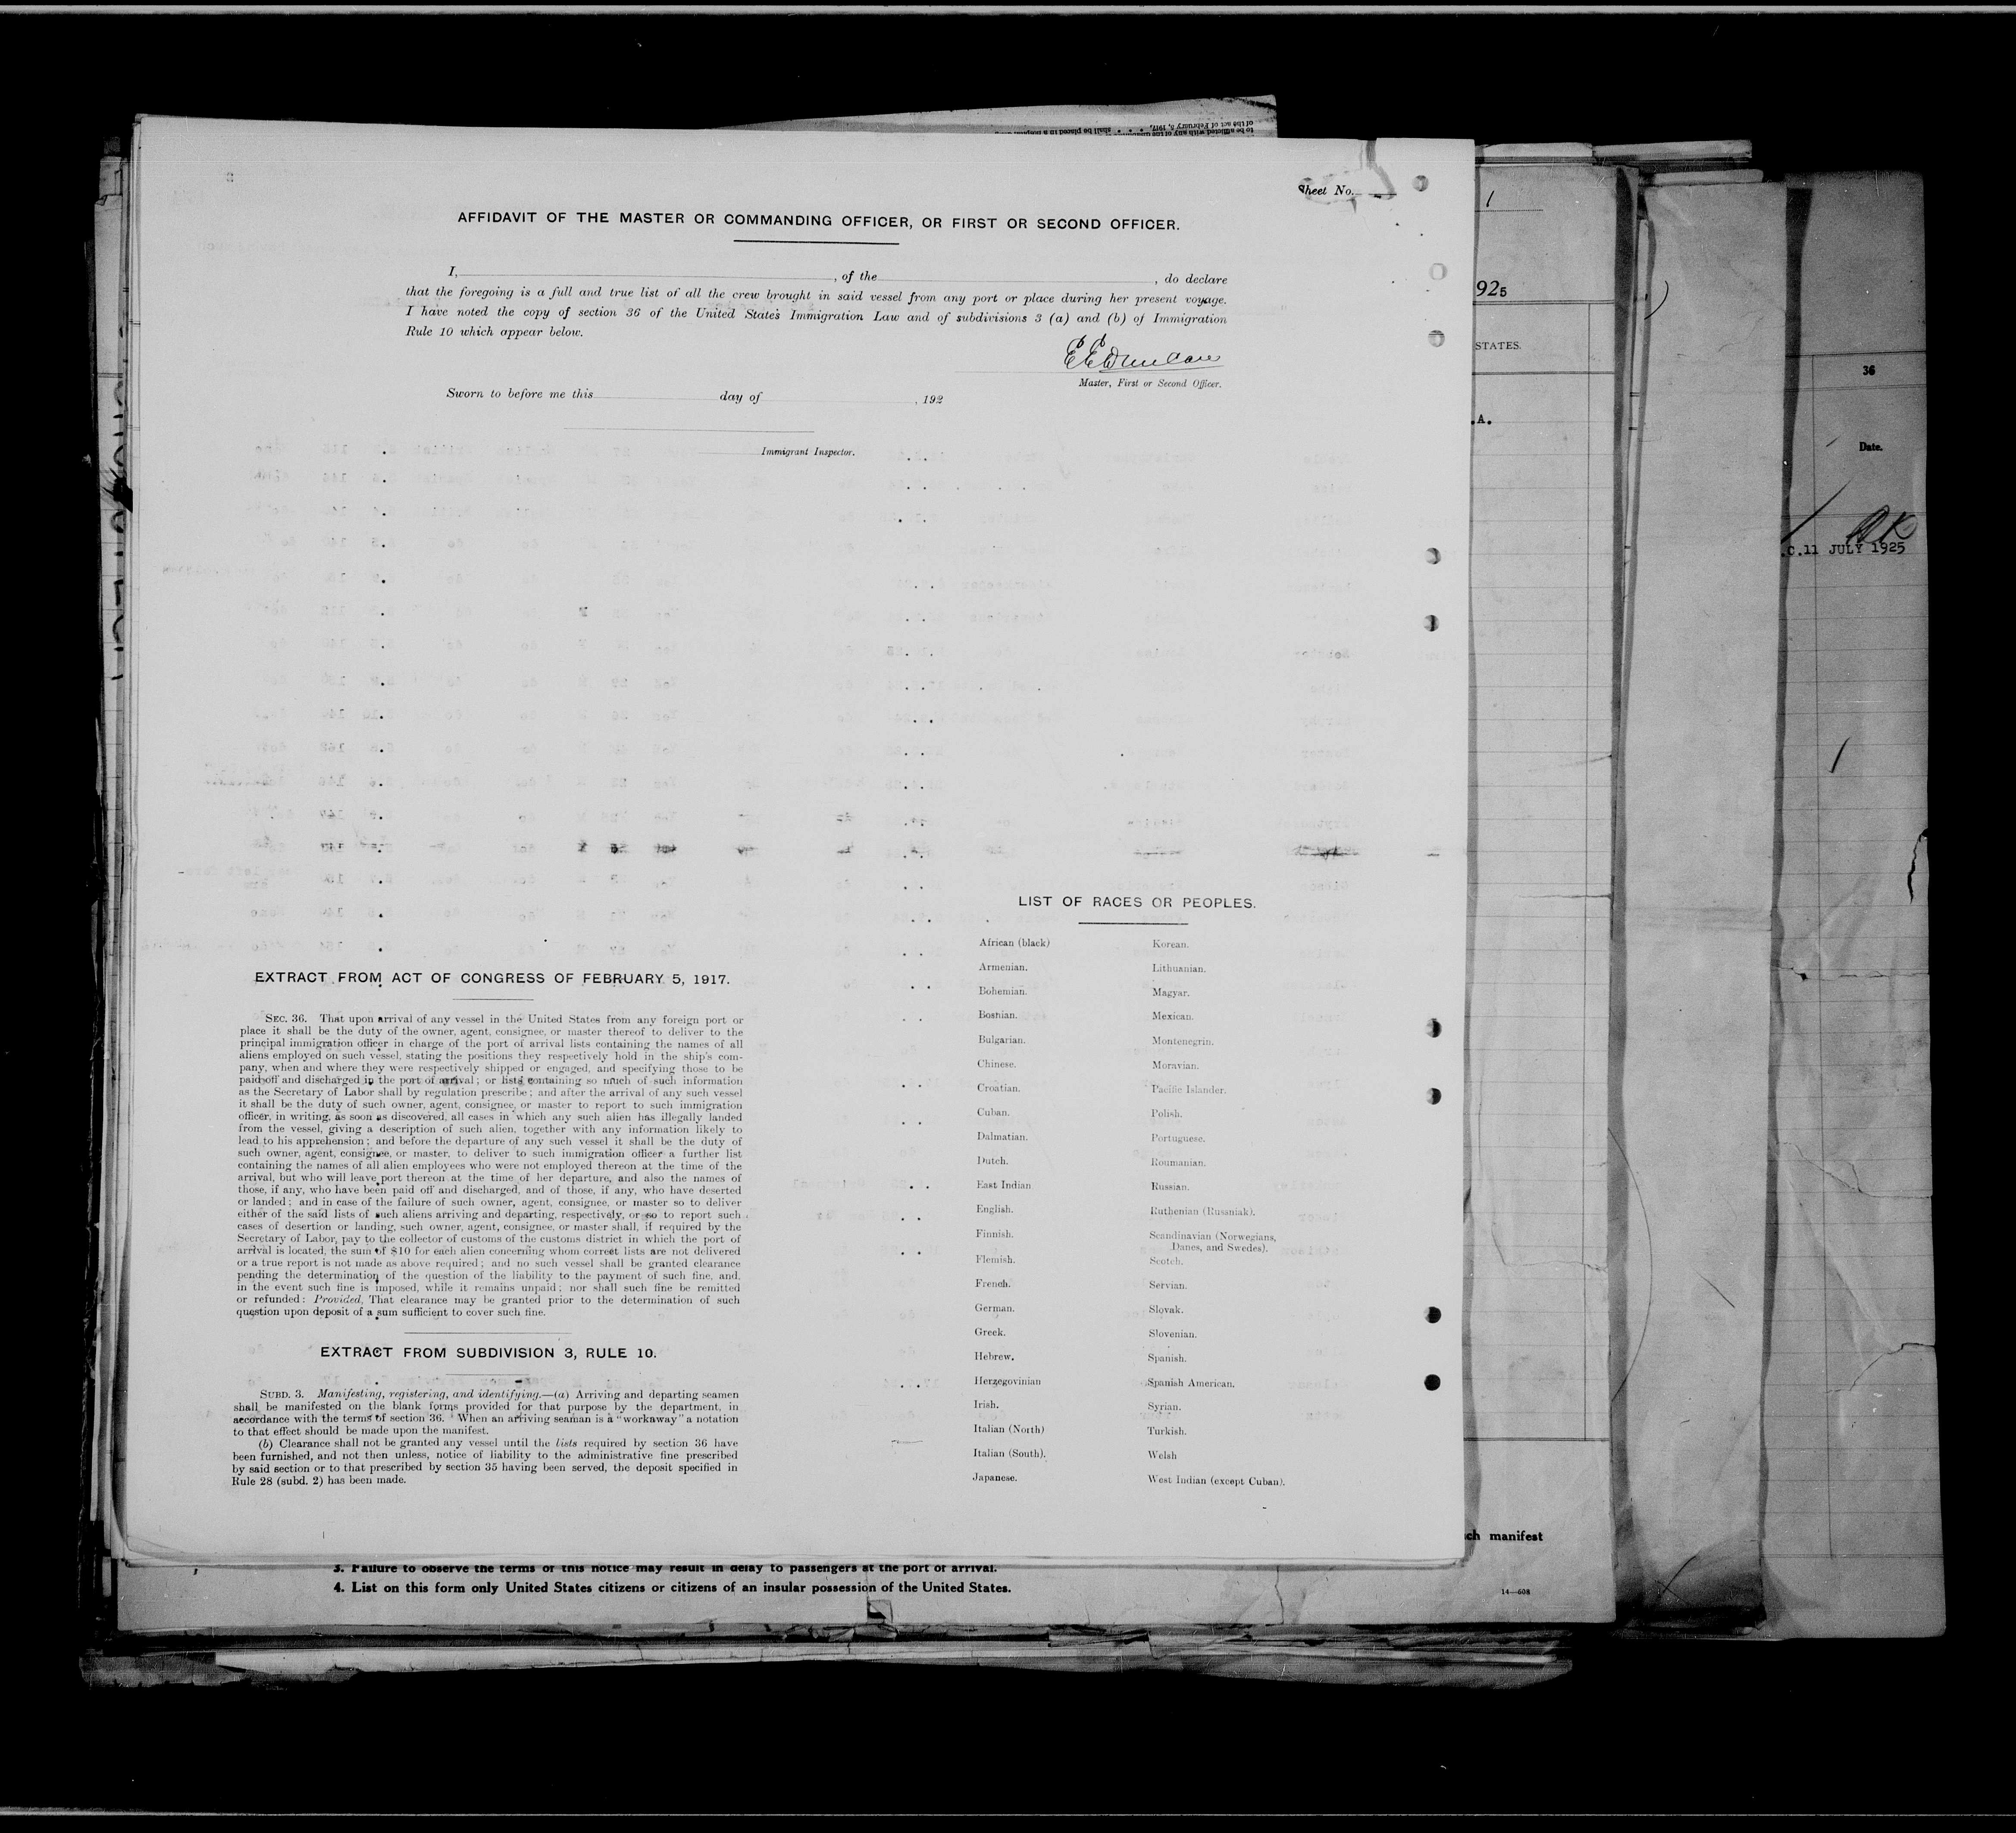 Sheet No.
AFFIDAVIT OF THE MASTER OR COMMANDING OFFICER, OR FIRST OR SECOND OFFICER.
I, , of the , do declare
that the foregoing is a full and true list of all the crew brought in said vessel from any port or place during her present voyage.
I have noted the copy of section 36 of the United States Immigration Law and of subdivisions 3 (a) and (b) of Immigration
Rule 10 which appear below.
Master, First or Second Officer.
Sworn to before me this day of , 192
Immigrant Inspector.
EXTRACT FROM ACT OF CONGRESS OF FEBRUARY 5, 1917.
SEC. 36. That upon arrival of any vessel in the United States from any foreign port or
place it shall be the duty of the owner, agent, consignee, or master thereof to deliver to the
principal immigration officer in charge of the port of arrival lists containing the names of all
aliens employed on such vessel, stating the positions they respectively hold in the ship's com-
pany, when and where they were respectively shipped or engaged, and specifying those to be
paid off and discharged in the port of arrival; or lists containing so much of such information
as the Secretary of Labor shall by regulation prescribe; and after the arrival of any such vessel
it shall be the duty of such owner, agent, consignee, or master to report to such immigration
officer, in writing, as soon as discovered, all cases in which any such alien has illegally landed
from the vessel, giving a description of such alien, together with any information likely to
lead to his apprehension; and before the departure of any such vessel it shall be the duty of
such owner, agent, consignee, or master, to deliver to such immigration officer a further list
containing the names of all alien employees who were not employed thereon at the time of the
arrival, but who will leave port thereon at the time of her departure, and also the names of
those, if any, who have been paid off and discharged, and of those, if any, who have deserted
or landed; and in case of the failure of such owner, agent, consignee, or master so to deliver
either of the said lists of such aliens arriving and departing, respectively, or so to report such
cases of desertion or landing, such owner, agent, consignee, or master shall, if required by the
Secretary of Labor, pay to the collector of customs of the customs district in which the port of
arrival is located, the sum of $10 for each alien concerning whom correct lists are not delivered
or a true report is not made as above required; and no such vessel shall be granted clearance
pending the determination of the question of the liability to the payment of such fine, and,
in the event such fine is imposed, while it remains unpaid; nor shall such fine be remitted
or refunded: Provided, That clearance may be granted prior to the determination of such
question upon deposit of a sum sufficient to cover such fine.
EXTRACT FROM SUBDIVISION 3, RULE 10.
SUBD. 3. Manifesting, registering, and identifying.—(a) Arriving and departing seamen
shall be manifested on the blank forms provided for that purpose by the department, in
accordance with the terms of section 36. When an arriving seaman is a "workaway" a notation
to that effect should be made upon the manifest.
(b) Clearance shall not be granted any vessel until the lists required by section 36 have
been furnished, and not then unless, notice of liability to the administrative fine prescribed
by said section or to that prescribed by section 35 having been served, the deposit specified in
Rule 28 (subd. 2) has been made.
LIST OF RACES OR PEOPLES.
African (black)
Armenian.
Bohemian.
Bosnian.
Bulgarian.
Chinese.
Croatian.
Cuban.
Dalmatian.
Dutch.
East Indian.
English.
Finnish.
Flemish.
French.
German.
Greek.
Hebrew.
Herzegovinian
Irish.
Italian (North)
Italian (South).
Japanese.
Korean.
Lithuanian.
Magyar.
Mexican.
Montenegrin.
Moravian.
Pacific Islander.
Polish.
Portuguese.
Roumanian.
Russian.
Ruthenian (Russniak).
Scandinavian (Norwegians,
Danes, and Swedes).
Scotch.
Servian.
Slovak.
Slovenian.
Spanish.
Spanish American.
Syrian.
Turkish.
Welsh
West Indian (except Cuban).
3. Failure to observe the terms of this notice may result in delay to passengers at the port of arrival.
4. List on this form only United States citizens or citizens of an insular possession of the United States.
1
925
STATES.
.A.
ch manifest
14—608
36
Date.
OK
.C.11 JULY 1925